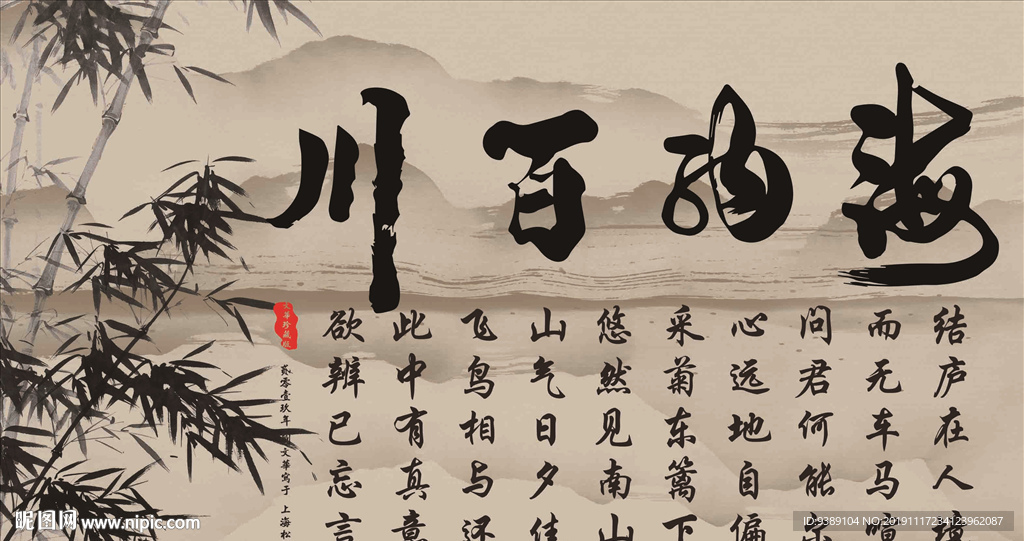 海纳百川
结庐在人境
而无车马喧
问君何能
心远地自偏
采菊东篱下
悠然见南山
山气日夕佳
飞鸟相与还
此中有真意
欲辨已忘言
贰零壹玖年 文華寫于 上海松
昵图网 www.nipic.com
ID:9389104 NO:20191117234123962087